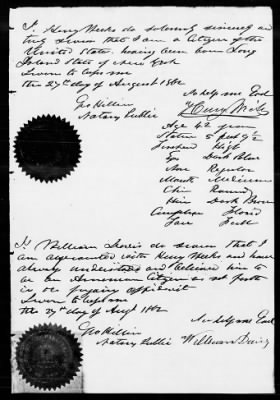 I, Henry Weeks do solemnly sincerely and
truly swear that I am a citizen of the
United States, having been born Long
Island State of New York
Sworn to before me
the 27th day of August 1862
So help me God
Geo Killin
Notary Public
Henry Weeks
Age 42 years
Stature 5 feet 9½
Forehead High
Eyes Dark Blue
Nose Regular
Mouth Medium
Chin Round
Hair Dark Brown
Complexion Florid
Face Full
I, William davis do swear that I
am acquainted with Henry Weeks and have
always understood and believed him to
be an American Citizen as set forth
in the forgoing affidavit
Sworn before me
the 27th day of Augt 1862
So help me God
Geo Killin
Notary Public
William